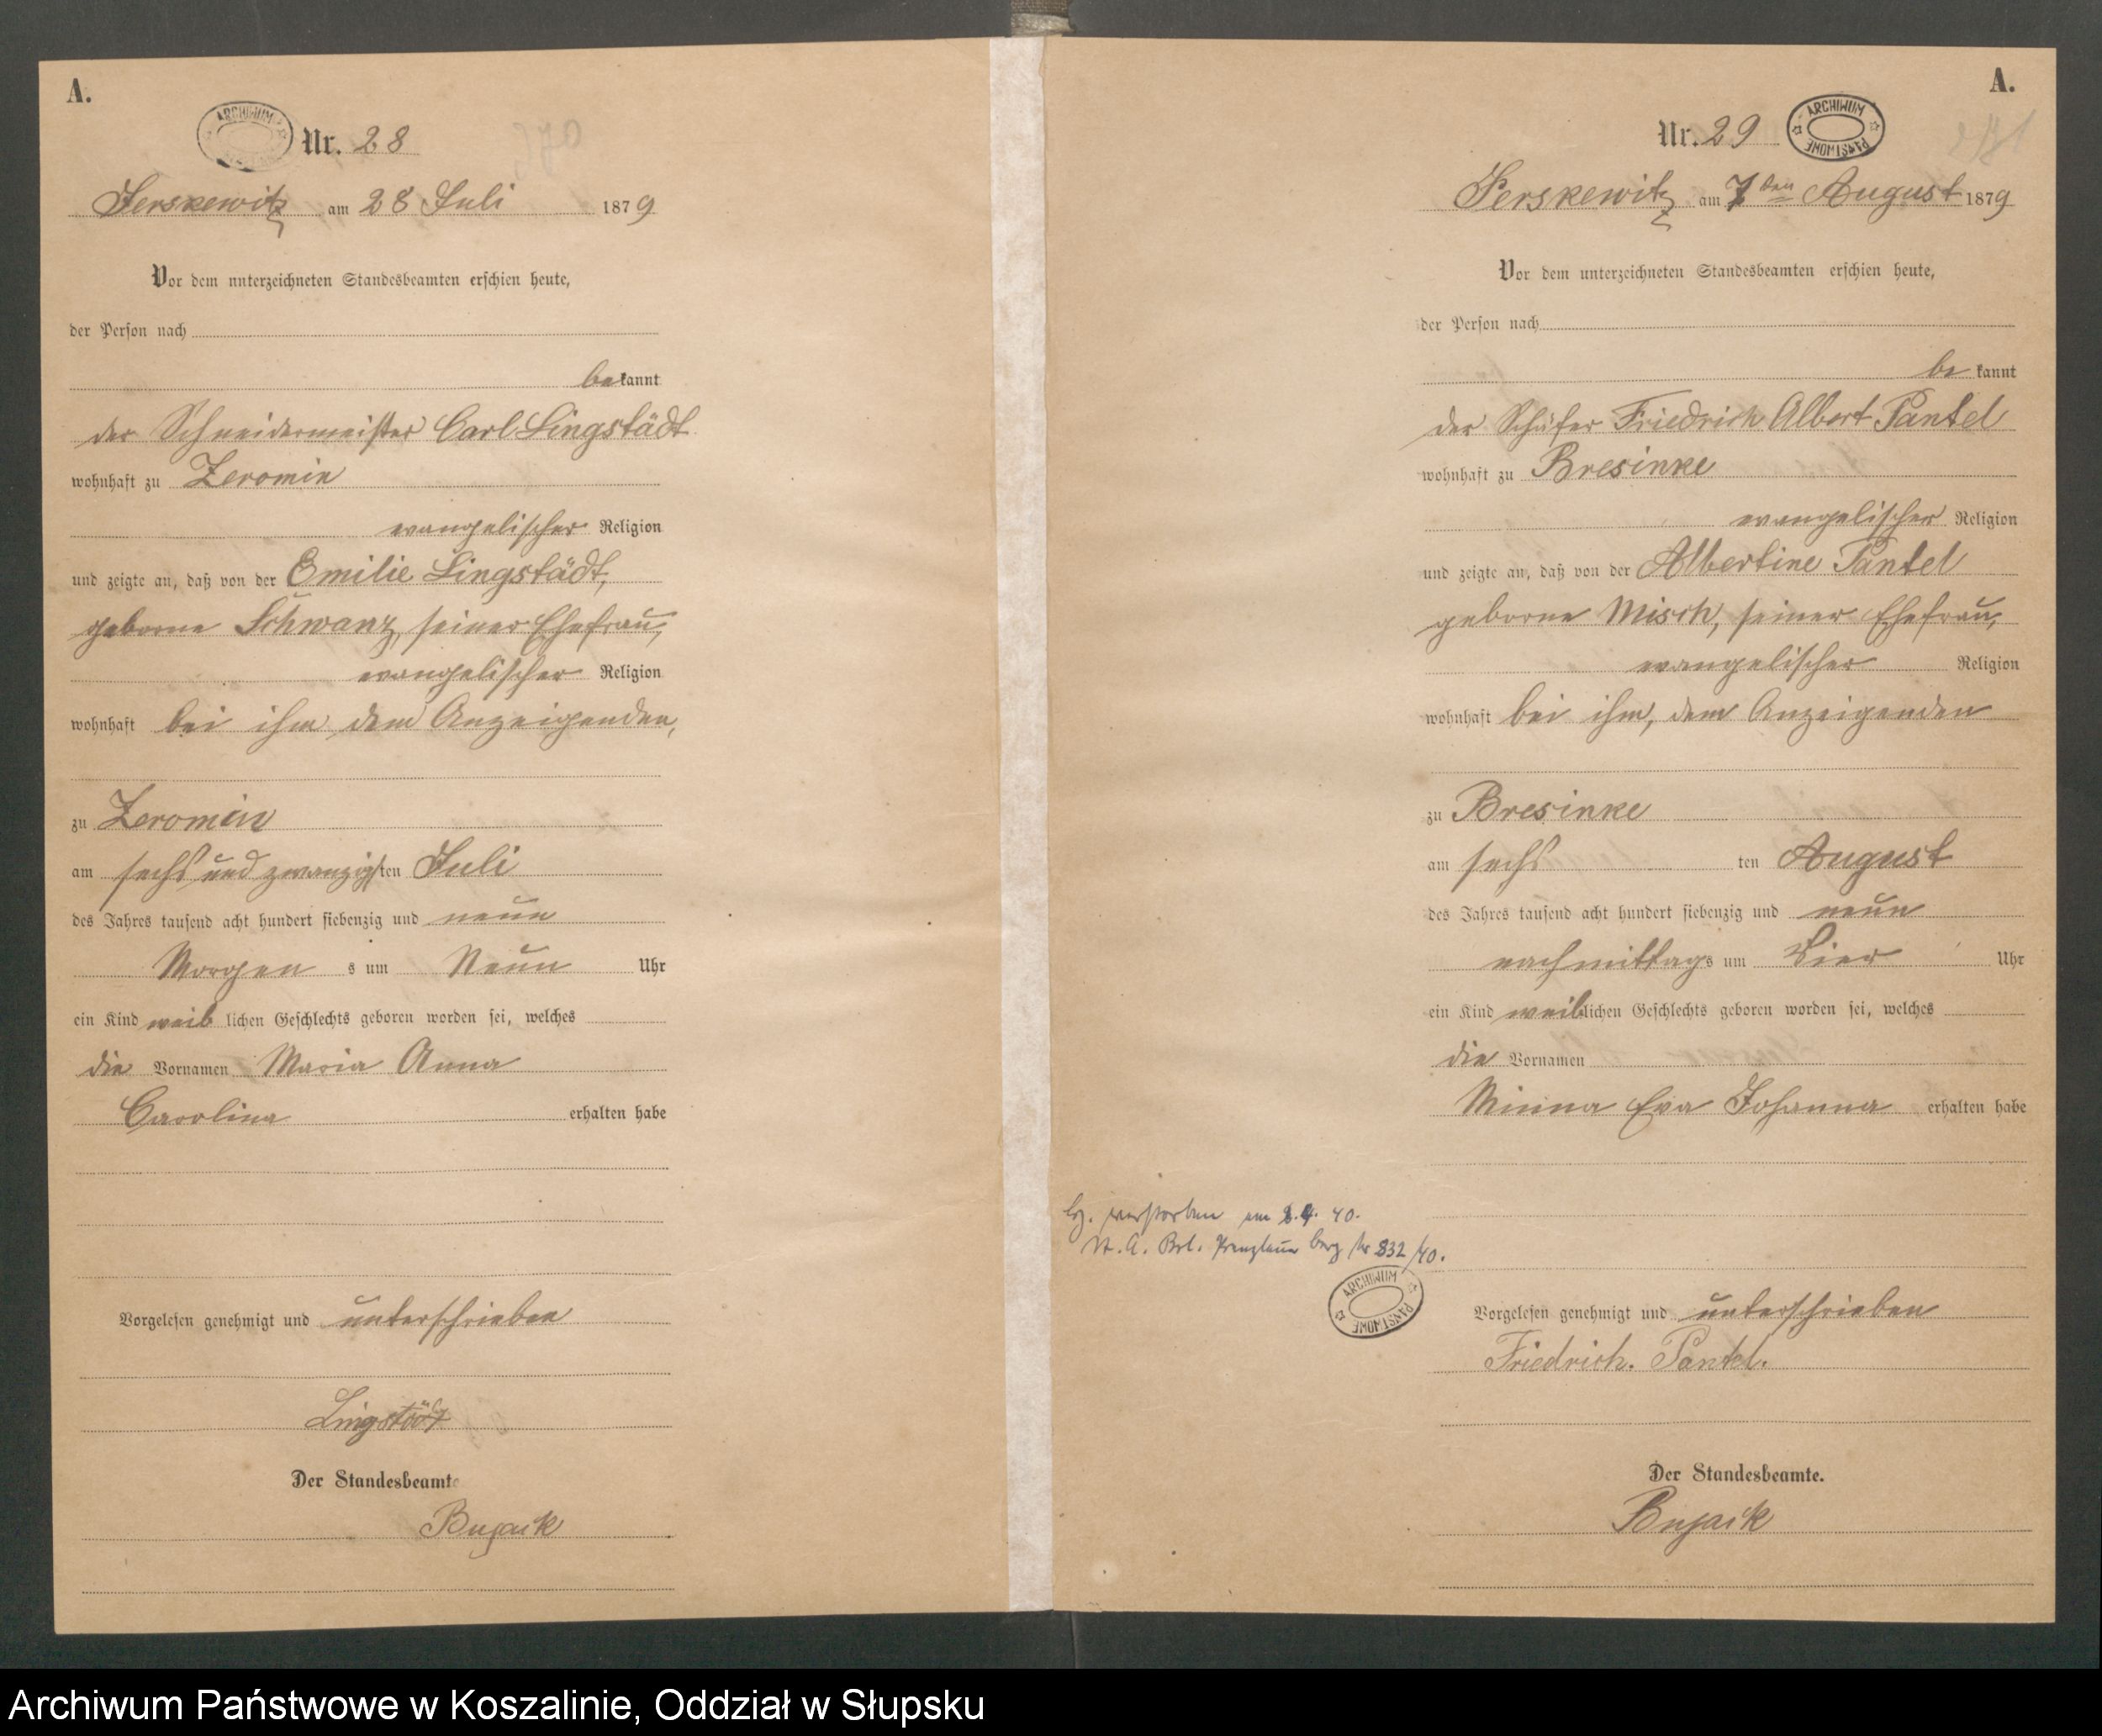 A.
ARCHIWUM
Nr. 28
Jerskewitz am 28 Juli 1879
Vor dem unterzeichneten Standesbeamten erschien heute,
der Person nach
bekannt
der Schneidermeister Carl Lingstädt
wohnhaft zu Zeromin
evangelischer Religion
und zeigte an, daß von der Emilie Lingstädt,
geborne Schwanz, seiner Ehefrau,
evangelischer Religion
wohnhaft bei ihm, dem Anzeigenden,
zu Zeromin
am sechs und zwanzigsten Juli
des Jahres tausend acht hundert siebenzig und neun
Morgens um Neun Uhr
ein Kind weiblichen Geschlechts geboren worden sei, welches
die Vornamen Maria Anna
Carolina erhalten habe
Vorgelesen genehmigt und unterschrieben
Lingstädt
Der Standesbeamte
Bujack
A.
Nr. 29
ARCHIWUM PAŃSTWOWE
Jerskewitz am 7ten August 1879
Vor dem unterzeichneten Standesbeamten erschien heute,
der Person nach
bekannt
der Schäfer Friedrich Albert Pantel
wohnhaft zu Bresinke
evangelischer Religion
und zeigte an, daß von der Albertine Pantel
geborne Misch, seiner Ehefrau,
evangelischer Religion
wohnhaft bei ihm, dem Anzeigenden
zu Bresinke
am sechsten August
des Jahres tausend acht hundert siebenzig und neun
nachmittags um Vier Uhr
ein Kind weiblichen Geschlechts geboren worden sei, welches
die Vornamen
Minna Eva Johanna erhalten habe
verstorben am 2.4.40.
St. A. Brl. Prenzlauer berg Nr 832/40.
ARCHIWUM PAŃSTWOWE
Vorgelesen genehmigt und unterschrieben
Friedrich. Pantel.
Der Standesbeamte.
Bujack
Archiwum Państwowe w Koszalinie, Oddział w Słupsku